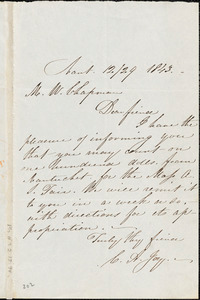 Nant. 12/29 1843.
M. W. Chapman
Dear friend
I have the
pleasure of informing you
that you may count on
one hundred dolls. from
Nantucket, for the Mass A.
S. Fair. We will remit it
to you in a week or so,
with directions for its ap
propriation.
Truly thy friend